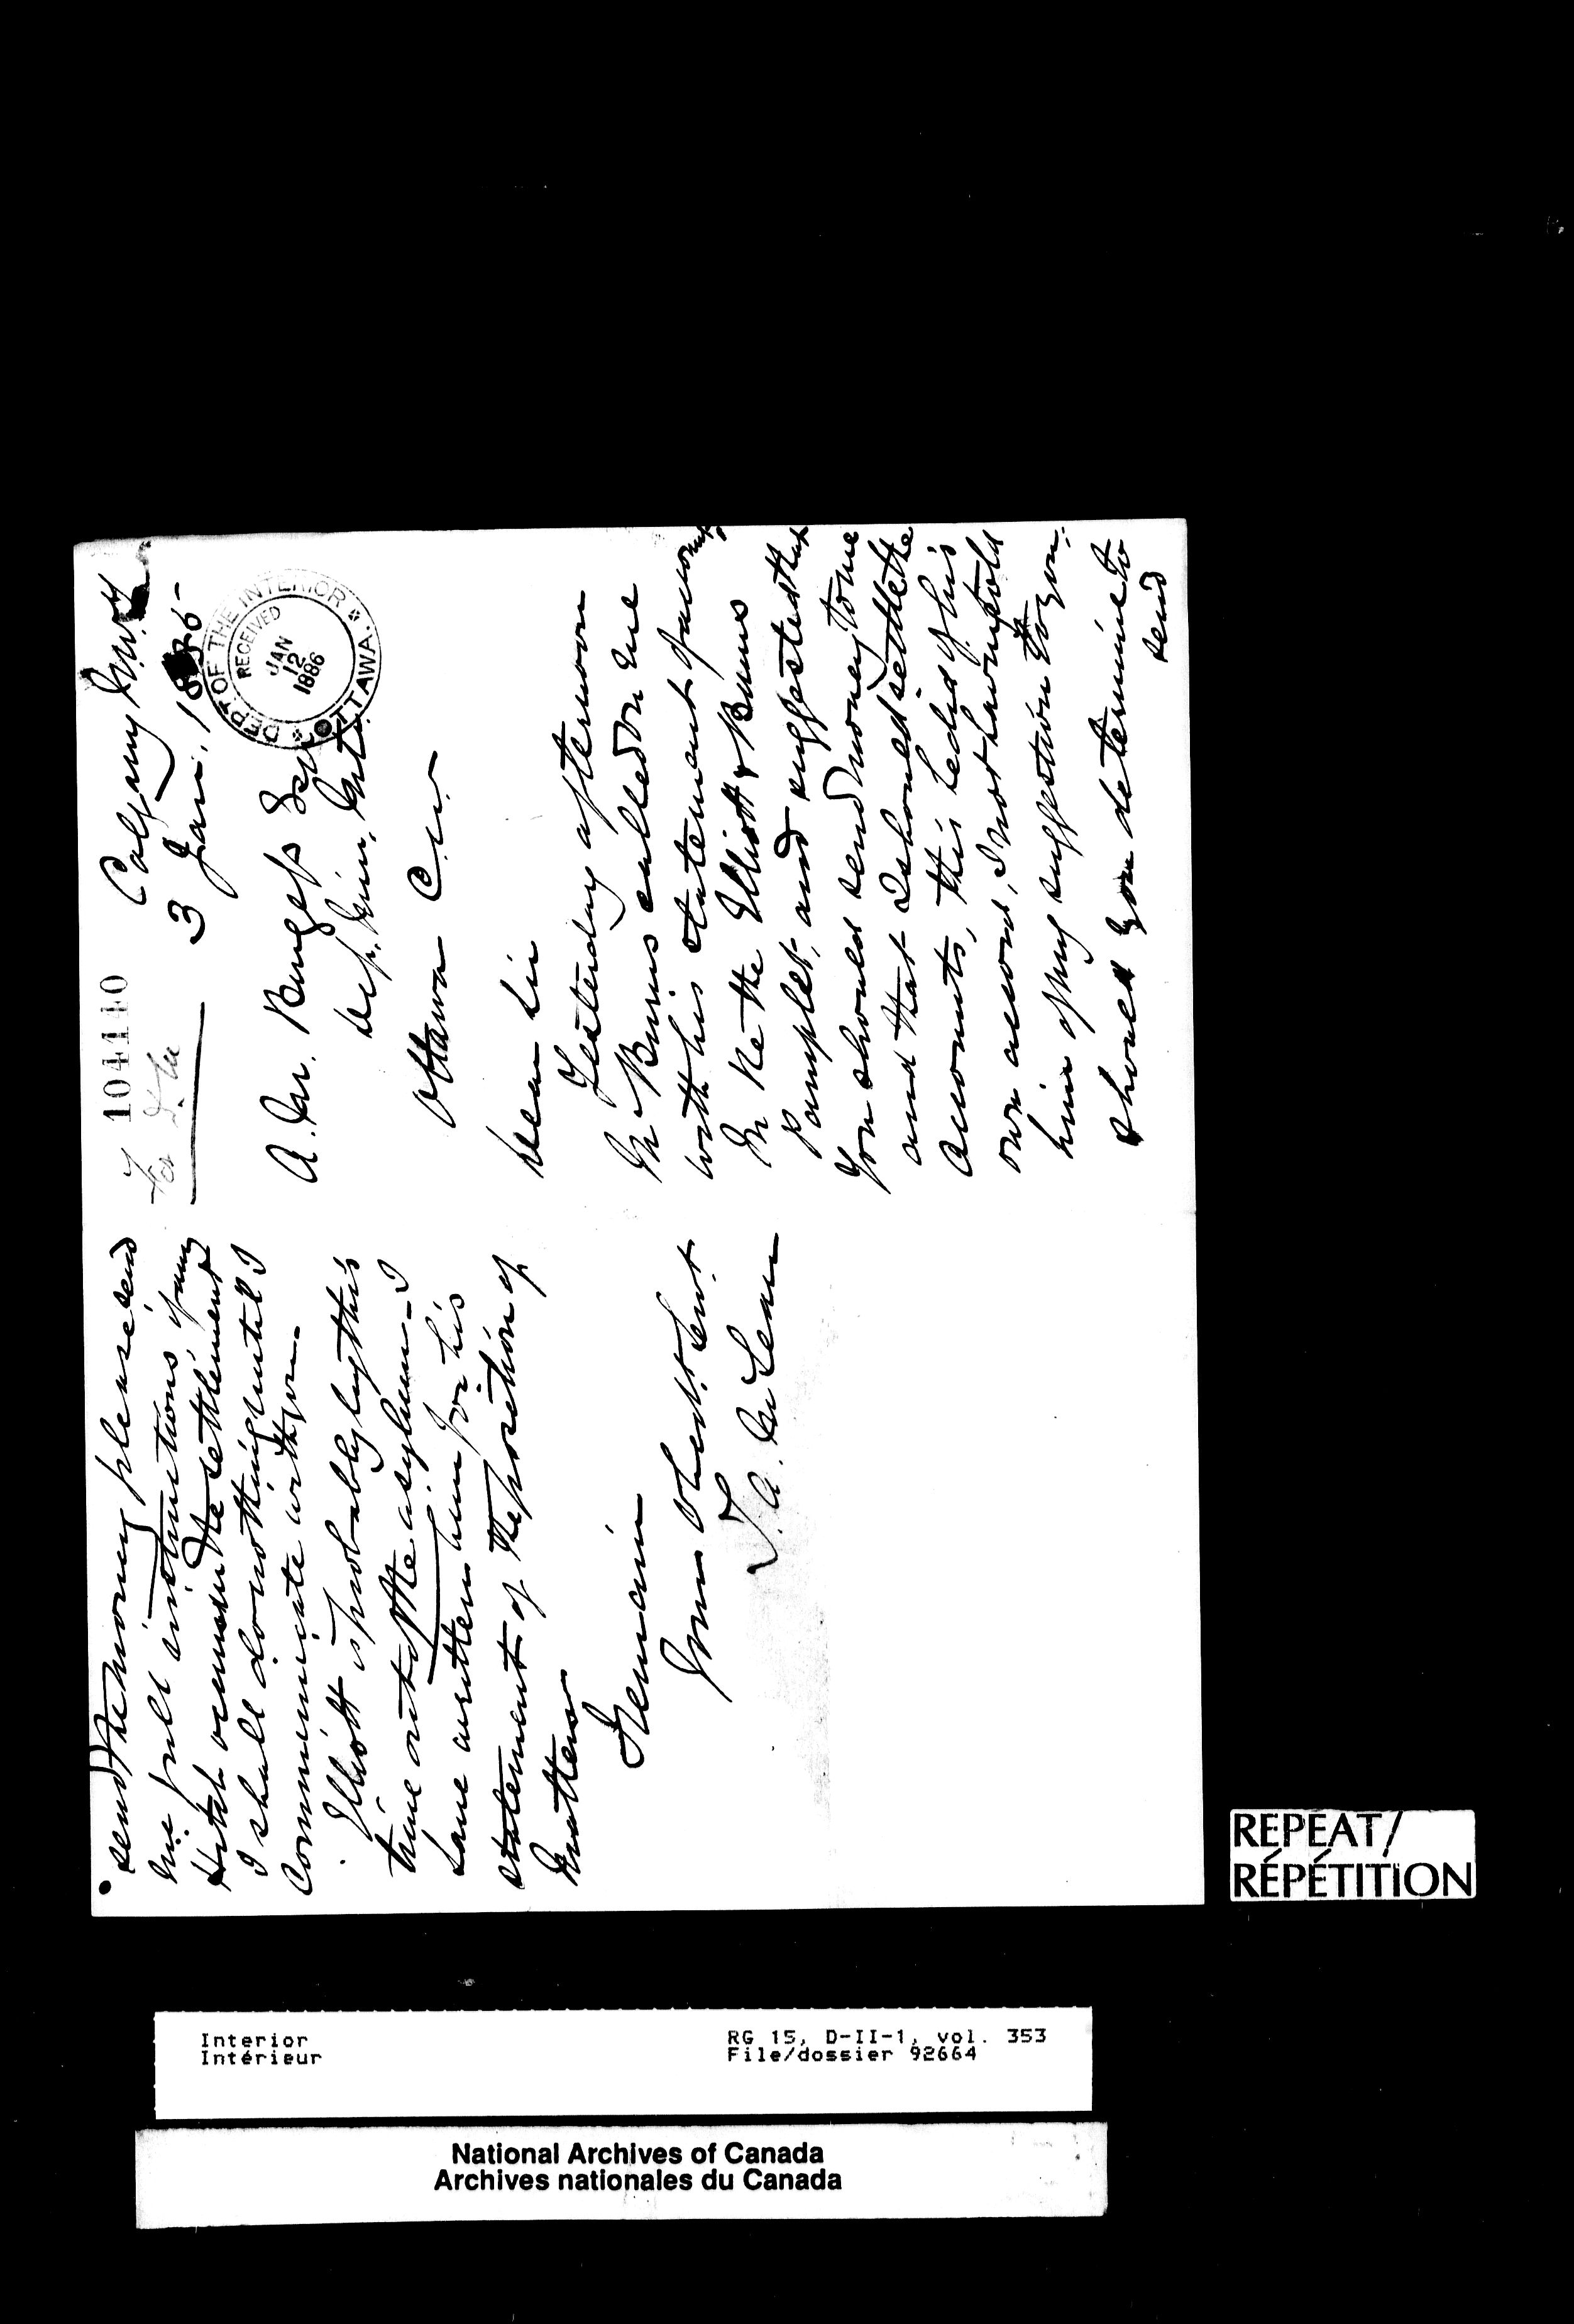 104140
Calgary N.W.T.
3 Jany. 1886
DEPT. OF THE INTERIOR
RECEIVED
JAN
12
1886
OTTAWA.
A. M. Burgess Esq
Dep. Min. Int.
Ottawa C.W.
Dear Sir
Yesterday afternoon
Mr Burns called on me
with his statement of account
In Re the Elliott & Burns
Pamplet, and suggested that
You should send money to me
and that I should settle the
accounts, this he did of his
own accord, I not having told
him of my suggestion to you.
Should you determine to
send
send the money please send
me full instructions of any
Hitch occurs in the settlement
I shall do nothing until I
Communicate with you.
Elliott is probably by this
time out of the asylum - I
have written him for his
statement of the position of
Matters
I remain
Your Obedt. Servt.
J. A. McLean
REPEAT/
RÉPÉTITION
Interior
Intérieur
RG 15, D-II-1, vol. 353
File/dossier 92664
National Archives of Canada
Archives nationales du Canada